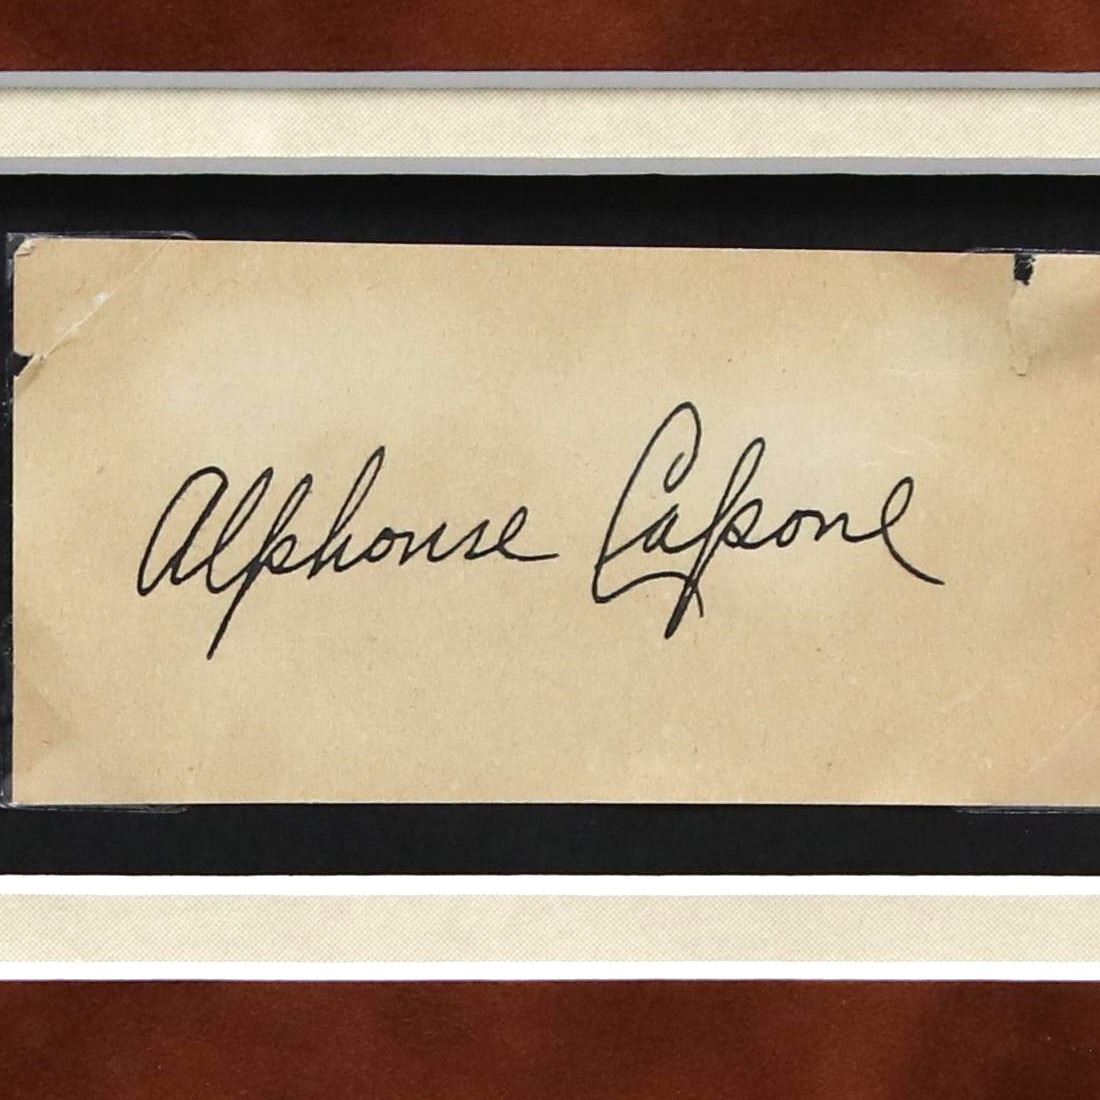 Alphouse Capone